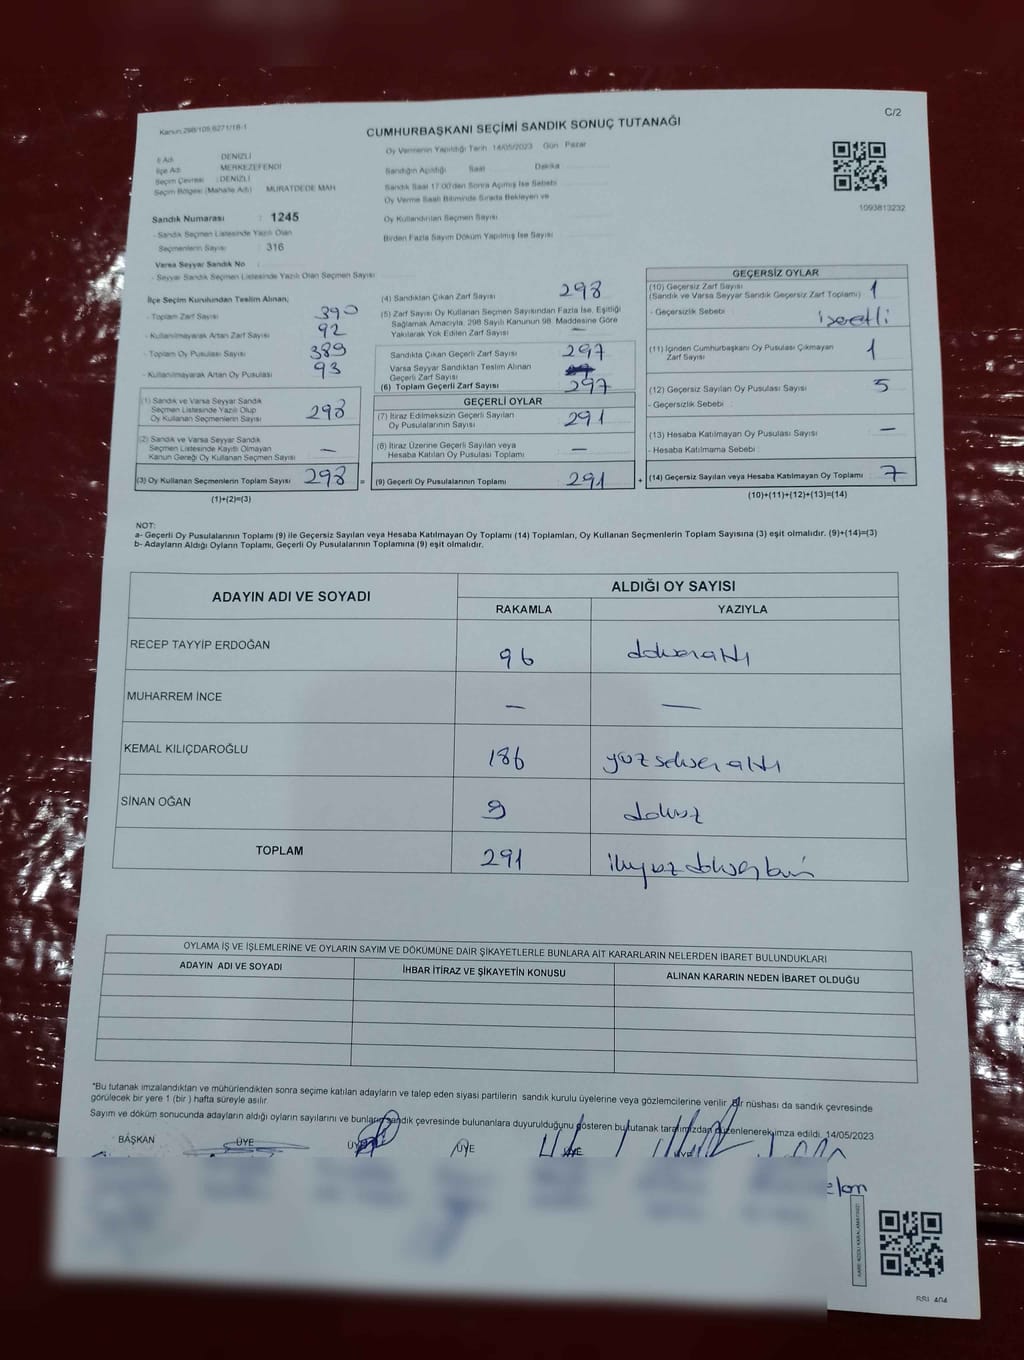 C/2
Kanun 298/109,6271/18-1
CUMHURBAŞKANI SEÇİMİ SANDIK SONUÇ TUTANAĞI
Oy Vermenin Yapıldığı Tarih 14/05/2023 Gün Pazar
İl Adı DENİZLİ
İlçe Adı MERKEZEFENDİ
Seçim Çevresi : DENİZLİ
Seçim Bölgesi (Mahalle Adı) MURATDEDE MAH
Sandığın Açıldığı Saat Dakika
Sandık Saat 17.00'den Sonra Açılmış İse Sebebi
Oy Verme Saati Bitiminde Sırada Bekleyen ve
Oy Kullandırılan Seçmen Sayısı
Birden Fazla Sayım Döküm Yapılmış İse Sayısı
1093813232
Sandık Numarası : 1245
- Sandık Seçmen Listesinde Yazılı Olan
Seçmenlerin Sayısı : 316
Varsa Seyyar Sandık No :
- Seyyar Sandık Seçmen Listesinde Yazılı Olan Seçmen Sayısı
İlçe Seçim Kurulundan Teslim Alınan;
- Toplam Zarf Sayısı 390
- Kullanılmayarak Artan Zarf Sayısı 92
- Toplam Oy Pusulası Sayısı 389
- Kullanılmayarak Artan Oy Pusulası 93
(1) Sandık ve Varsa Seyyar Sandık
Seçmen Listesinde Yazılı Olup
Oy Kullanan Seçmenlerin Sayısı 298
(2) Sandık ve Varsa Seyyar Sandık
Seçmen Listesinde Kayıtlı Olmayan
Kanun Gereği Oy Kullanan Seçmen Sayısı —
(3) Oy Kullanan Seçmenlerin Toplam Sayısı 298 =
(1)+(2)=(3)
(4) Sandıktan Çıkan Zarf Sayısı 298
(5) Zarf Sayısı Oy Kullanan Seçmen Sayısından Fazla İse, Eşitliği
Sağlamak Amacıyla, 298 Sayılı Kanunun 98. Maddesine Göre
Yakılarak Yok Edilen Zarf Sayısı —
Sandıkta Çıkan Geçerli Zarf Sayısı 297
Varsa Seyyar Sandıktan Teslim Alınan
Geçerli Zarf Sayısı
(6) Toplam Geçerli Zarf Sayısı 297
GEÇERLİ OYLAR
(7) İtiraz Edilmeksizin Geçerli Sayılan
Oy Pusulalarının Sayısı 291
(8) İtiraz Üzerine Geçerli Sayılan veya
Hesaba Katılan Oy Pusulası Toplamı —
(9) Geçerli Oy Pusulalarının Toplamı 291 +
GEÇERSİZ OYLAR
(10) Geçersiz Zarf Sayısı
(Sandık ve Varsa Seyyar Sandık Geçersiz Zarf Toplamı) 1
- Geçersizlik Sebebi : işaretli
(11) İçinden Cumhurbaşkanı Oy Pusulası Çıkmayan
Zarf Sayısı 1
(12) Geçersiz Sayılan Oy Pusulası Sayısı 5
- Geçersizlik Sebebi :
(13) Hesaba Katılmayan Oy Pusulası Sayısı —
- Hesaba Katılmama Sebebi :
(14) Geçersiz Sayılan veya Hesaba Katılmayan Oy Toplamı 7
(10)+(11)+(12)+(13)=(14)
NOT:
a- Geçerli Oy Pusulalarının Toplamı (9) ile Geçersiz Sayılan veya Hesaba Katılmayan Oy Toplamı (14) Toplamları, Oy Kullanan Seçmenlerin Toplam Sayısına (3) eşit olmalıdır. (9)+(14)=(3)
b- Adayların Aldığı Oyların Toplamı, Geçerli Oy Pusulalarının Toplamına (9) eşit olmalıdır.
ADAYIN ADI VE SOYADI
ALDIĞI OY SAYISI
RAKAMLA YAZIYLA
RECEP TAYYİP ERDOĞAN 96 doksanaltı
MUHARREM İNCE — —
KEMAL KILIÇDAROĞLU 186 yüz seksen altı
SİNAN OĞAN 9 dokuz
TOPLAM 291 ikiyüz doksan bir
OYLAMA İŞ VE İŞLEMLERİNE VE OYLARIN SAYIM VE DÖKÜMÜNE DAİR ŞİKAYETLERLE BUNLARA AİT KARARLARIN NELERDEN İBARET BULUNDUKLARI
ADAYIN ADI VE SOYADI İHBAR İTİRAZ VE ŞİKAYETİN KONUSU ALINAN KARARIN NEDEN İBARET OLDUĞU
*Bu tutanak imzalandıktan ve mühürlendikten sonra seçime katılan adayların ve talep eden siyasi partilerin sandık kurulu üyelerine veya gözlemcilerine verilir. Bir nüshası da sandık çevresinde
görülecek bir yere 1 (bir ) hafta süreyle asılır.
Sayım ve döküm sonucunda adayların aldığı oyların sayılarını ve bunların sandık çevresinde bulunanlara duyurulduğunu gösteren bu tutanak tarafımızdan düzenlenerek imza edildi. 14/05/2023
BAŞKAN ÜYE ÜYE ÜYE ÜYE